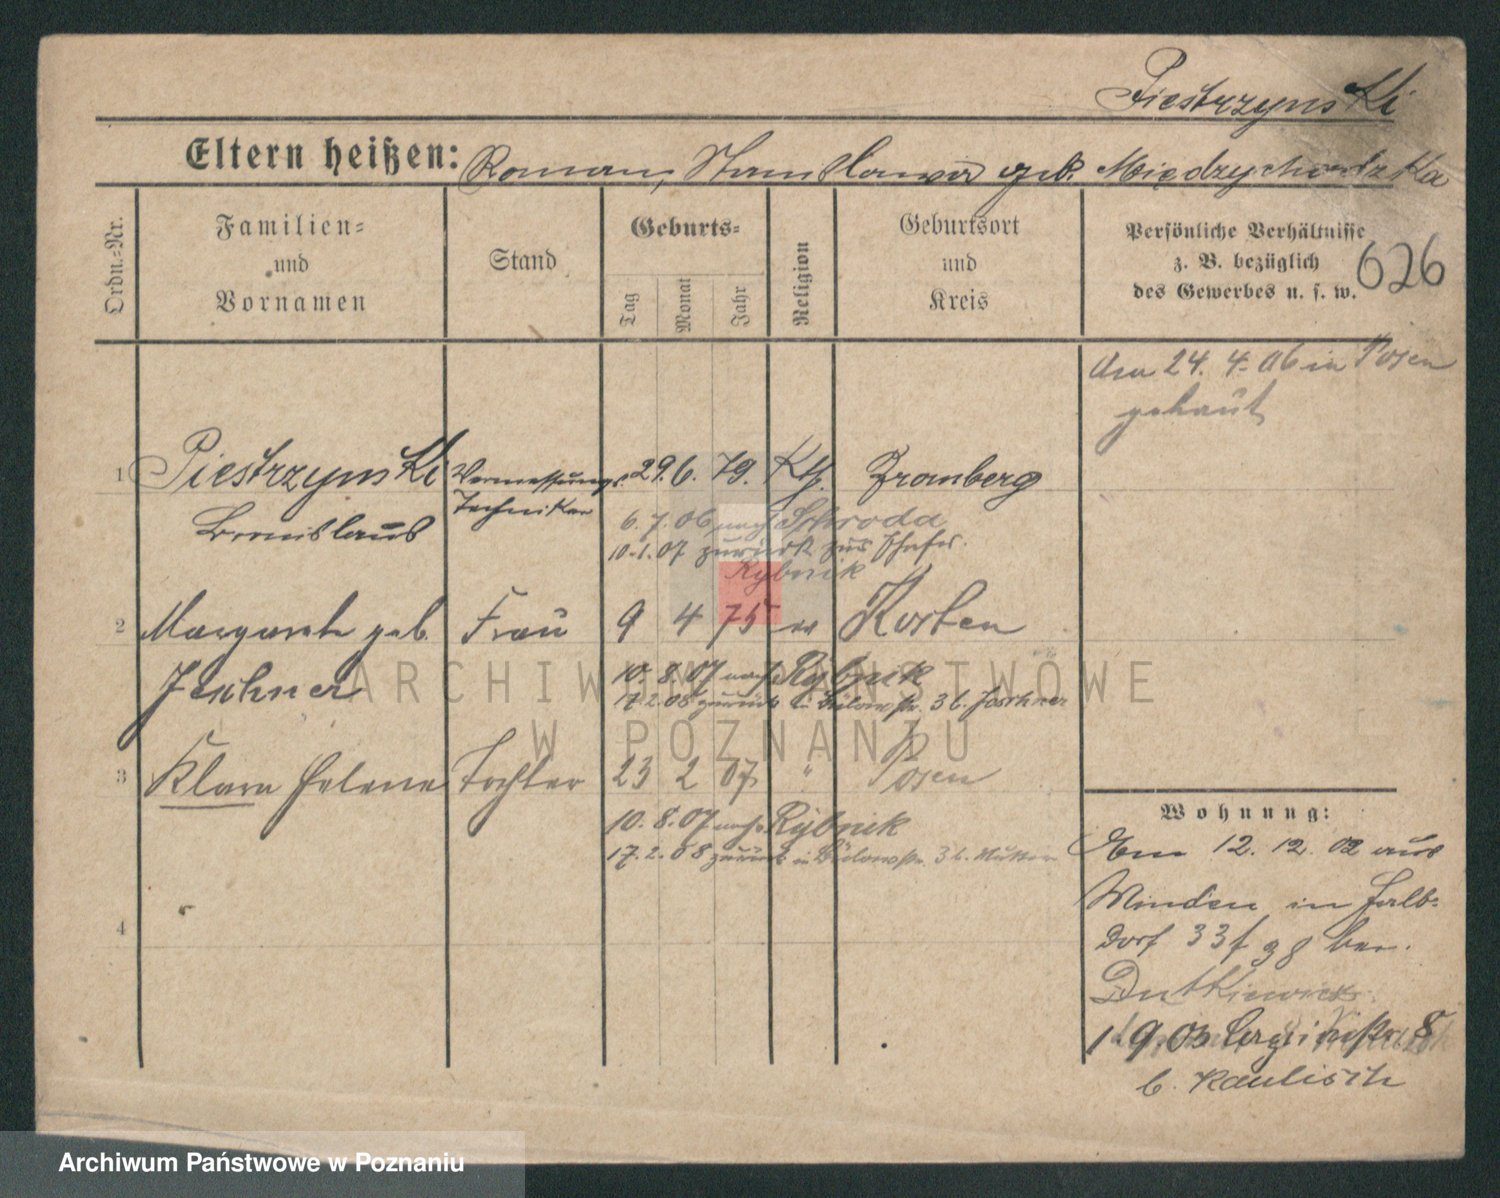 Piestrzynski
Eltern heißen: Roman, Stanislawa geb. Miedzychodzka
Ordn.-Nr.
Familien-
und
Vornamen
Stand
Geburts-
Tag
Monat
Jahr
Religion
Geburtsort
und
Kreis
Persönliche Verhältnisse
z. B. bezüglich
des Gewerbes u. s. w.
626
Am 24. 4. 06 in Posen
getraut
1 Piestrzynski Vermessungs 29. 6. 79. Kth. Bromberg
Bronislaus Techniker
6. 7. 06 nach Schroda
10.1.07 zurück zur
Rybnik
2 Margarete geb. Frau 9 4 75 ev Kosten
Jeschner
10. 8. 07 nach Rybnik
17.2.08 zurück in Bülowstr. 3 b. Jeschner
3 Klara Helene Tochter 23 2 07 " Posen
10. 8. 07 nach Rybnik
17. 2. 08 zurück in Bülowstr. 3 b. Mutter
4
Wohnung:
Am 12. 12. 02 aus
Minden in Halb-
dorf 33 bei
Dutkiewicz
1903 8
b. Kaulisch
ARCHIWUM PAŃSTWOWE
W POZNANIU
Archiwum Państwowe w Poznaniu